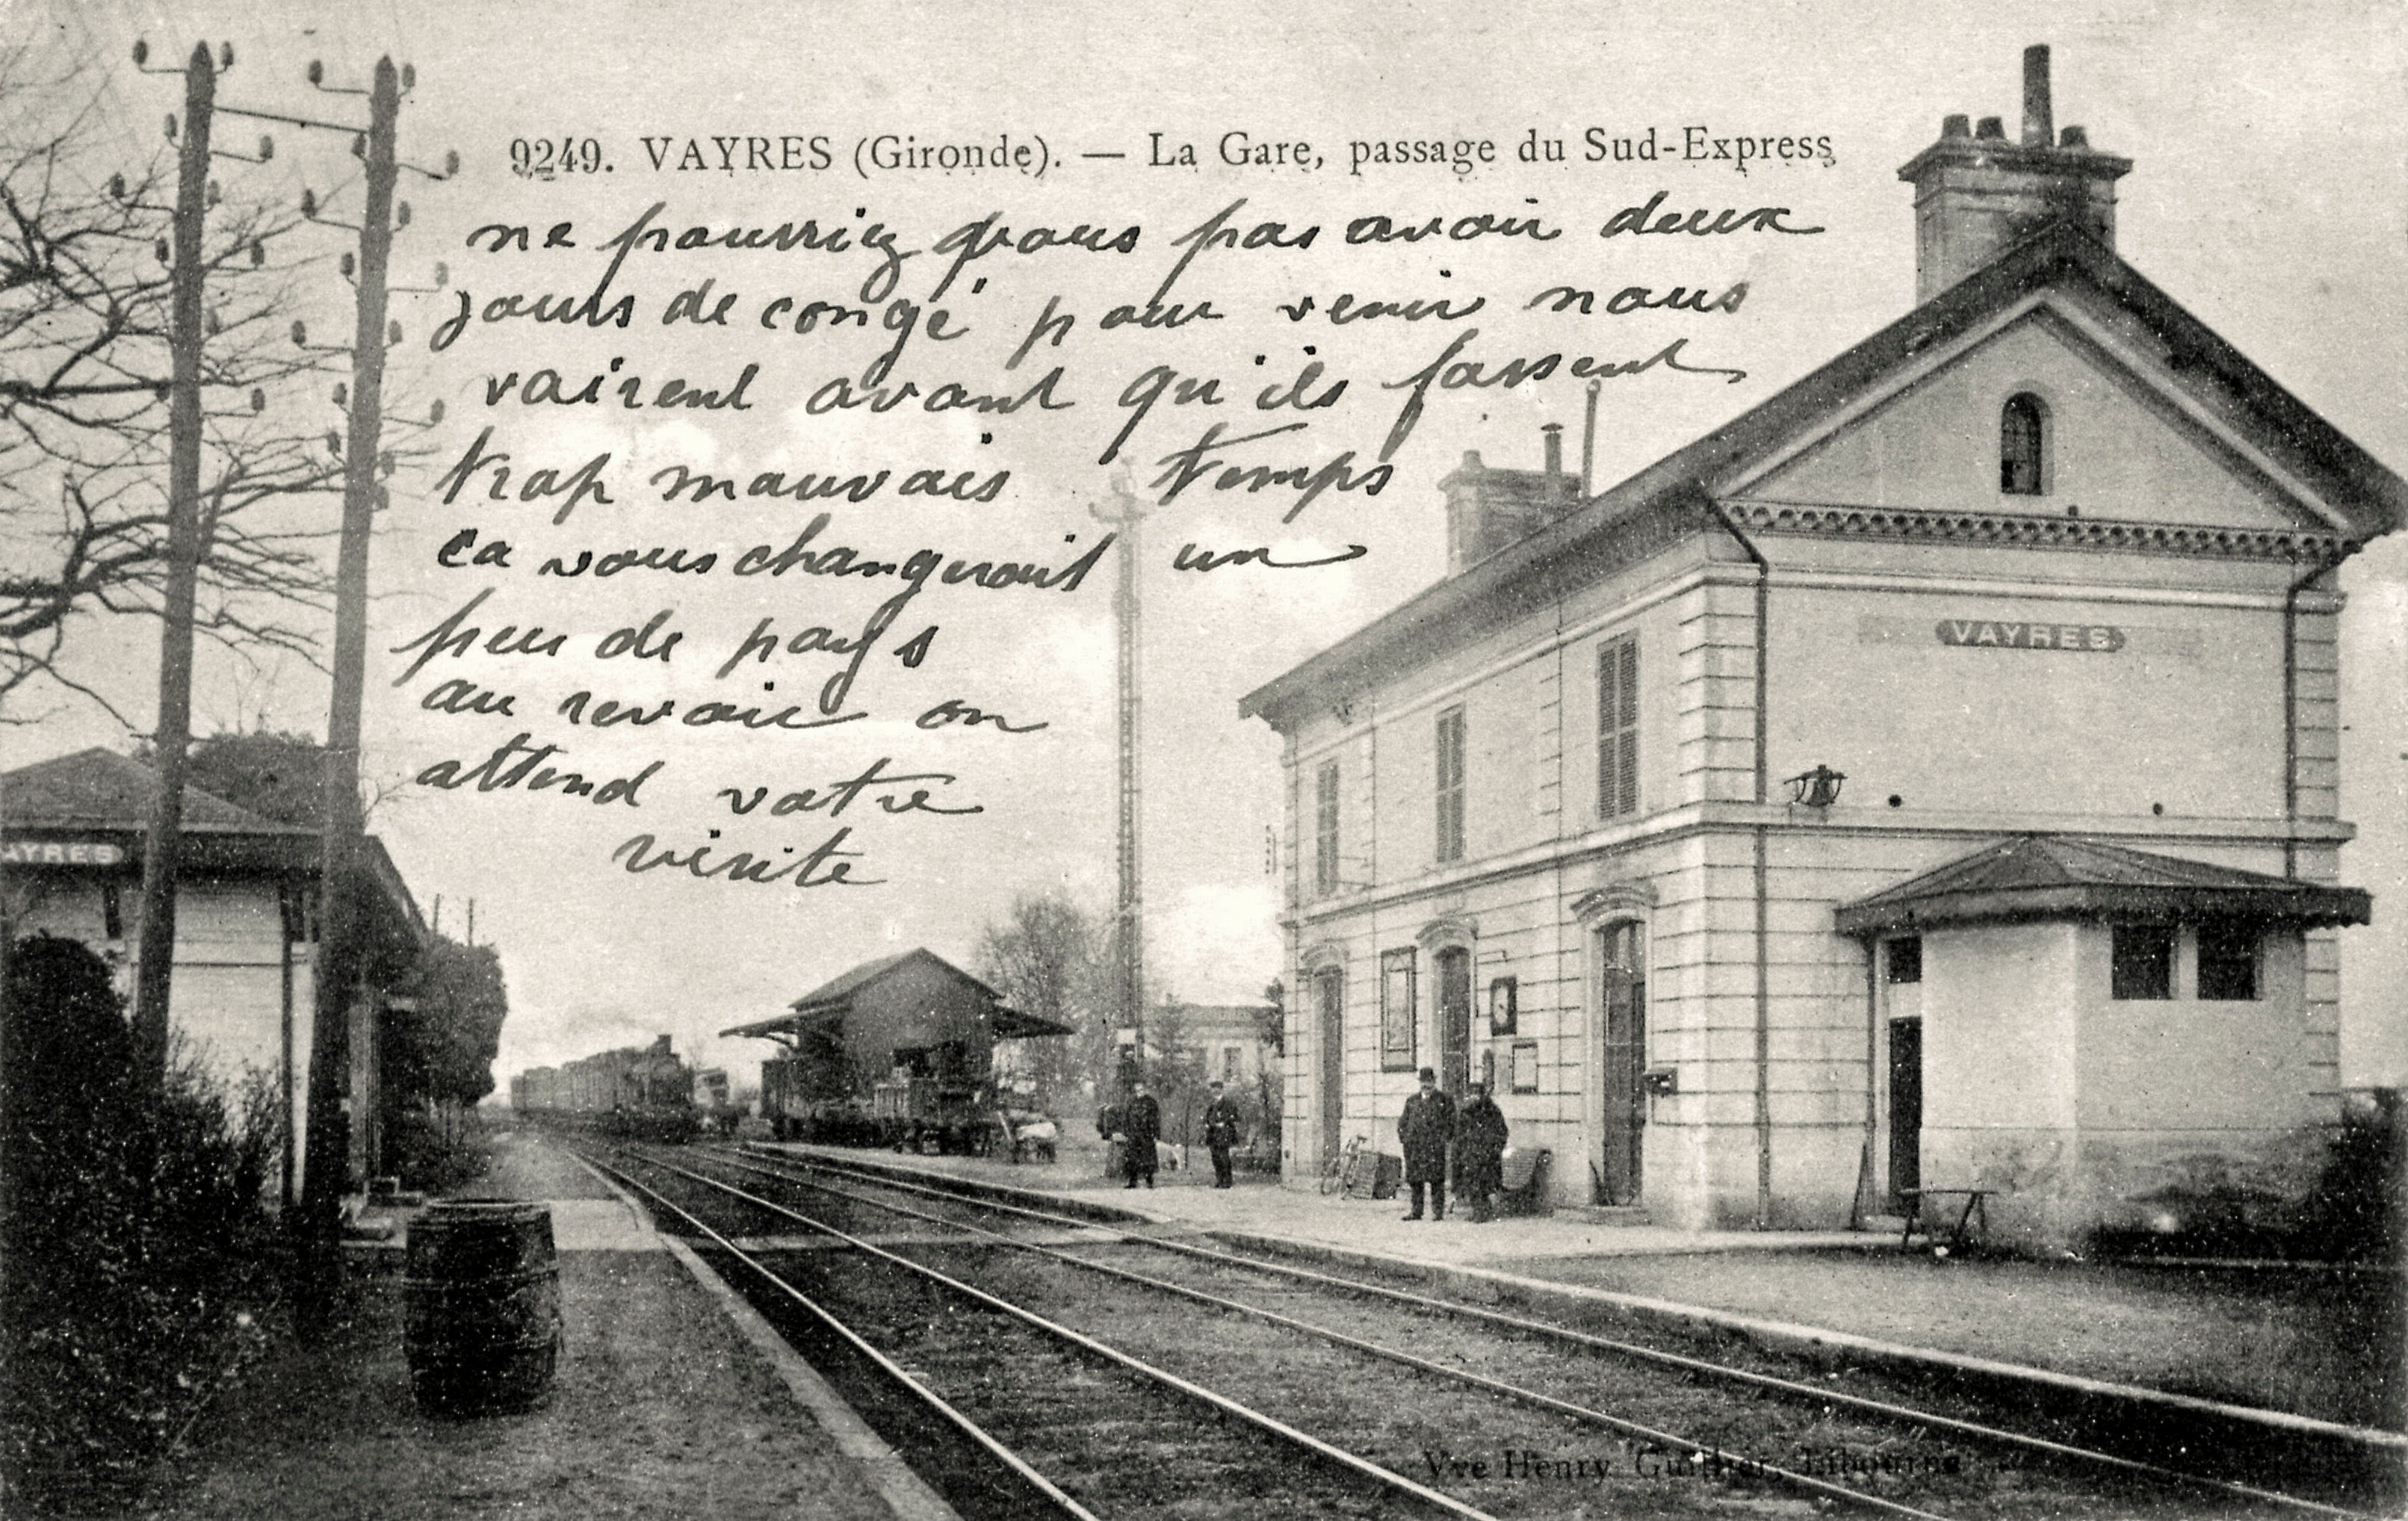 9249. VAYRES (Gironde). — La Gare, passage du Sud-Express
ne pourriez vous pas avoir deux
jours de congé pour venir nous
vairent avant qu'ils fassent
trop mauvais temps
ça vous changerait un
peu de pays
au revoir on
attend votre
visite
VAYRES
AYRES
Vve Henry Guillier, Libourne